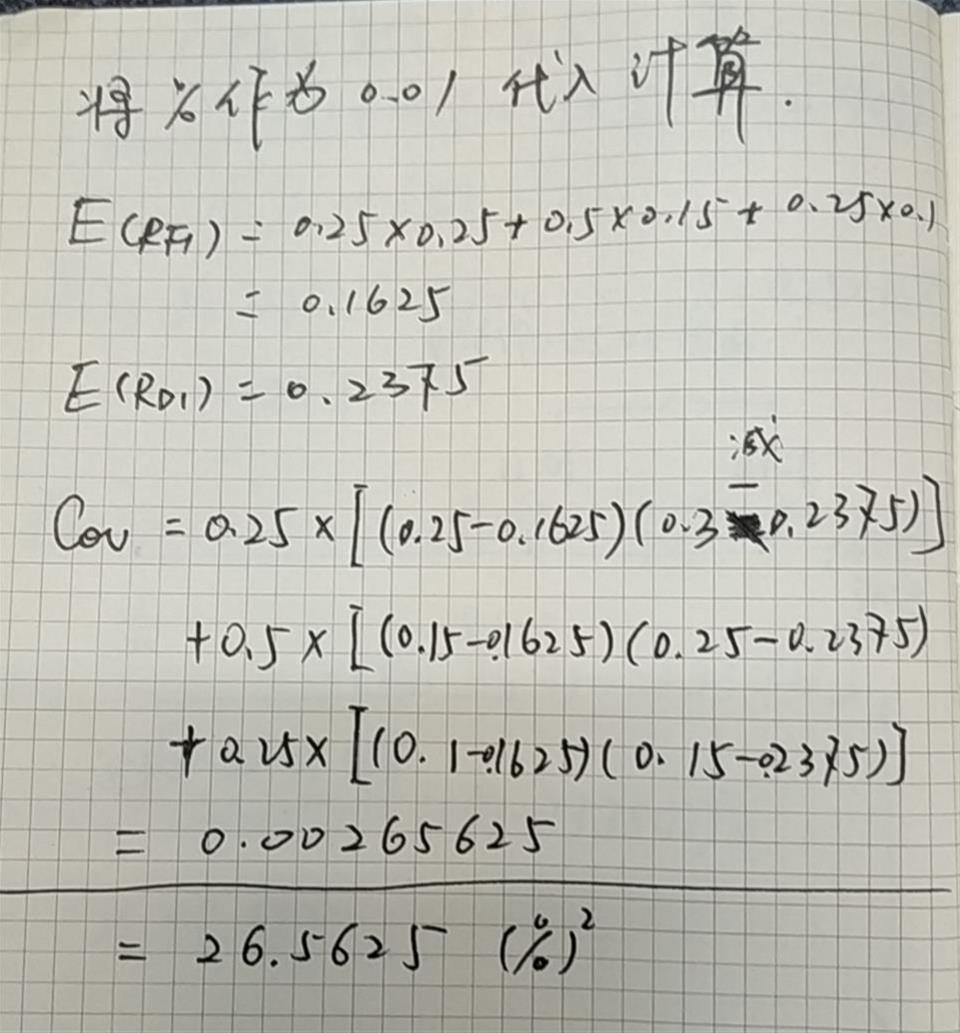 将%作为 0.01 代入计算.
E(RF1) = 0.25×0.25+0.5×0.15+0.25×0.1
= 0.1625
E(RD1) = 0.2375
减
Cov = 0.25×[(0.25-0.1625)(0.3-0.2375)]
+0.5×[(0.15-0.1625)(0.25-0.2375)
+0.25×[(0.1-0.1625)(0.15-0.2375)]
= 0.00265625
= 26.5625 (%)²